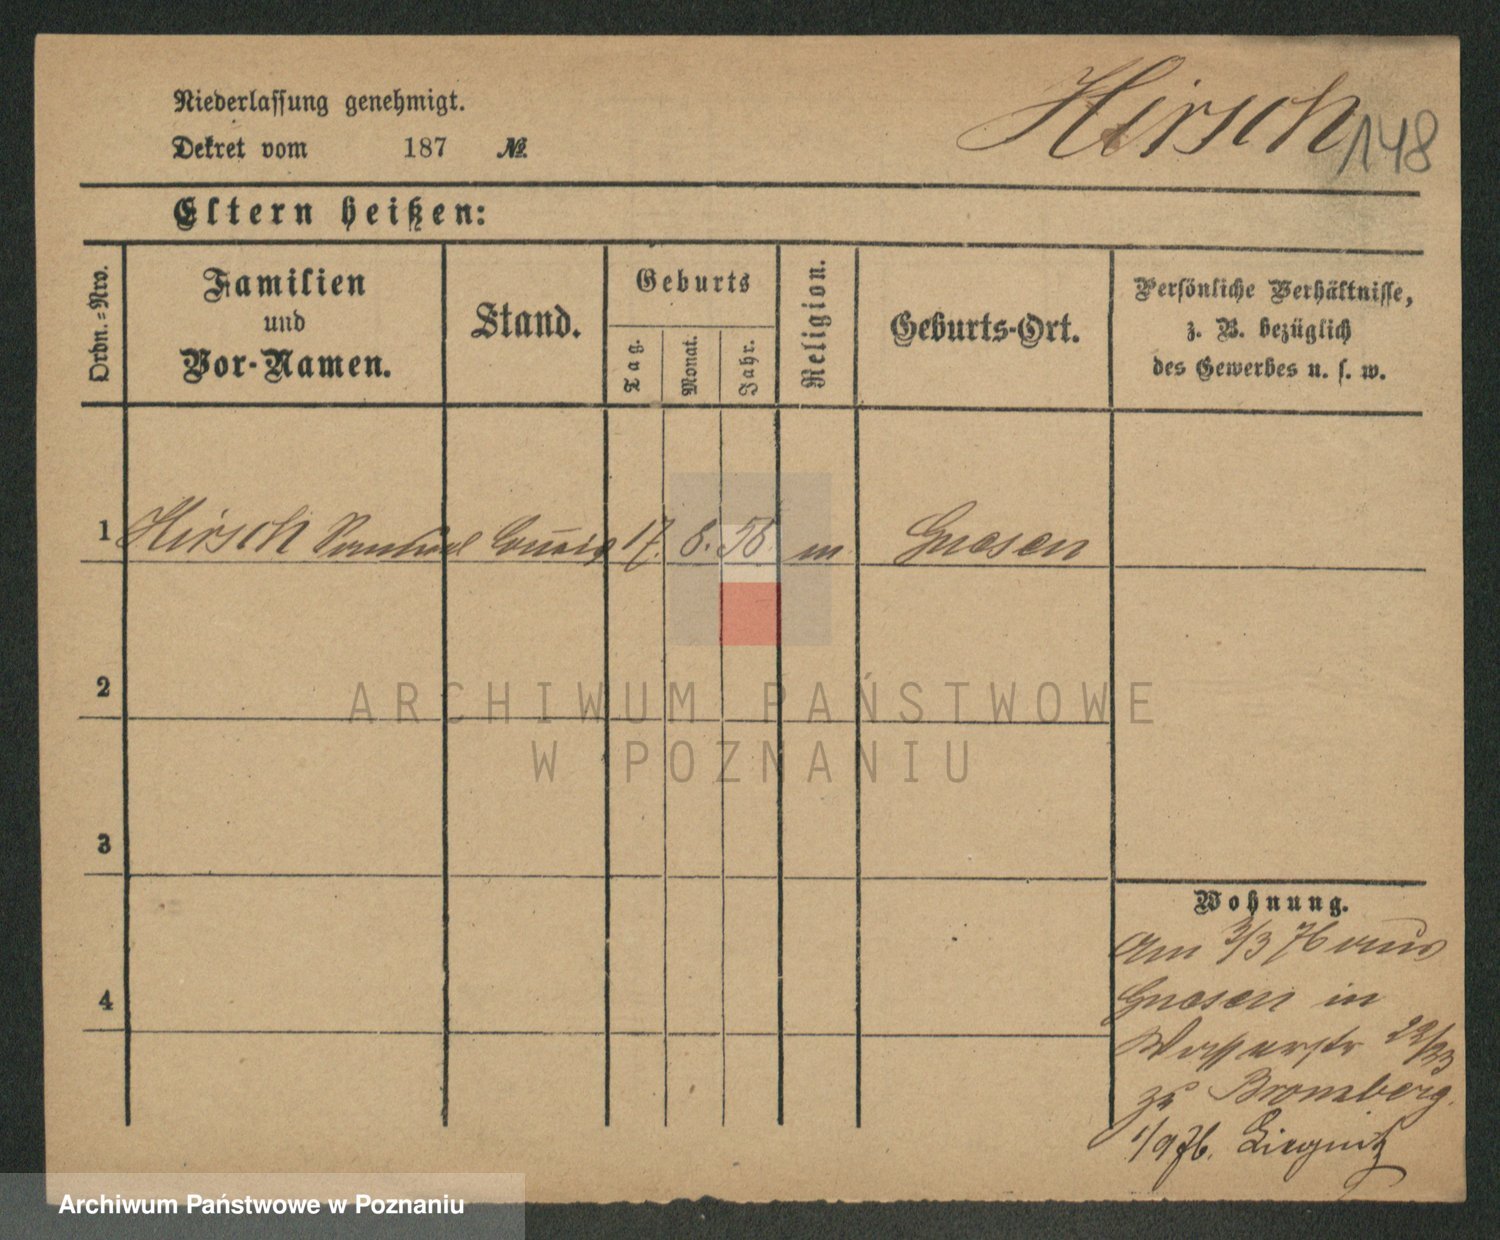 Niederlassung genehmigt.
Hirsch 148
Dekret vom 187 №
Eltern heißen:
Ordn.-Nro.
Familien
und
Vor-Namen.
Stand.
Geburts
Tag.
Monat.
Jahr.
Religion.
Geburts-Ort.
Persönliche Verhältnisse,
z. B. bezüglich
des Gewerbes u. s. w.
1 Hirsch Samuel Commis 17. 8. 56. m Gnesen
2
ARCHIWUM PAŃSTWOWE
W POZNANIU
3
Wohnung.
Am 3/3 76 aus
Gnesen in
4
Wasserstr 22/23
zu Bromberg.
1/9 76. Liegnitz
Archiwum Państwowe w Poznaniu